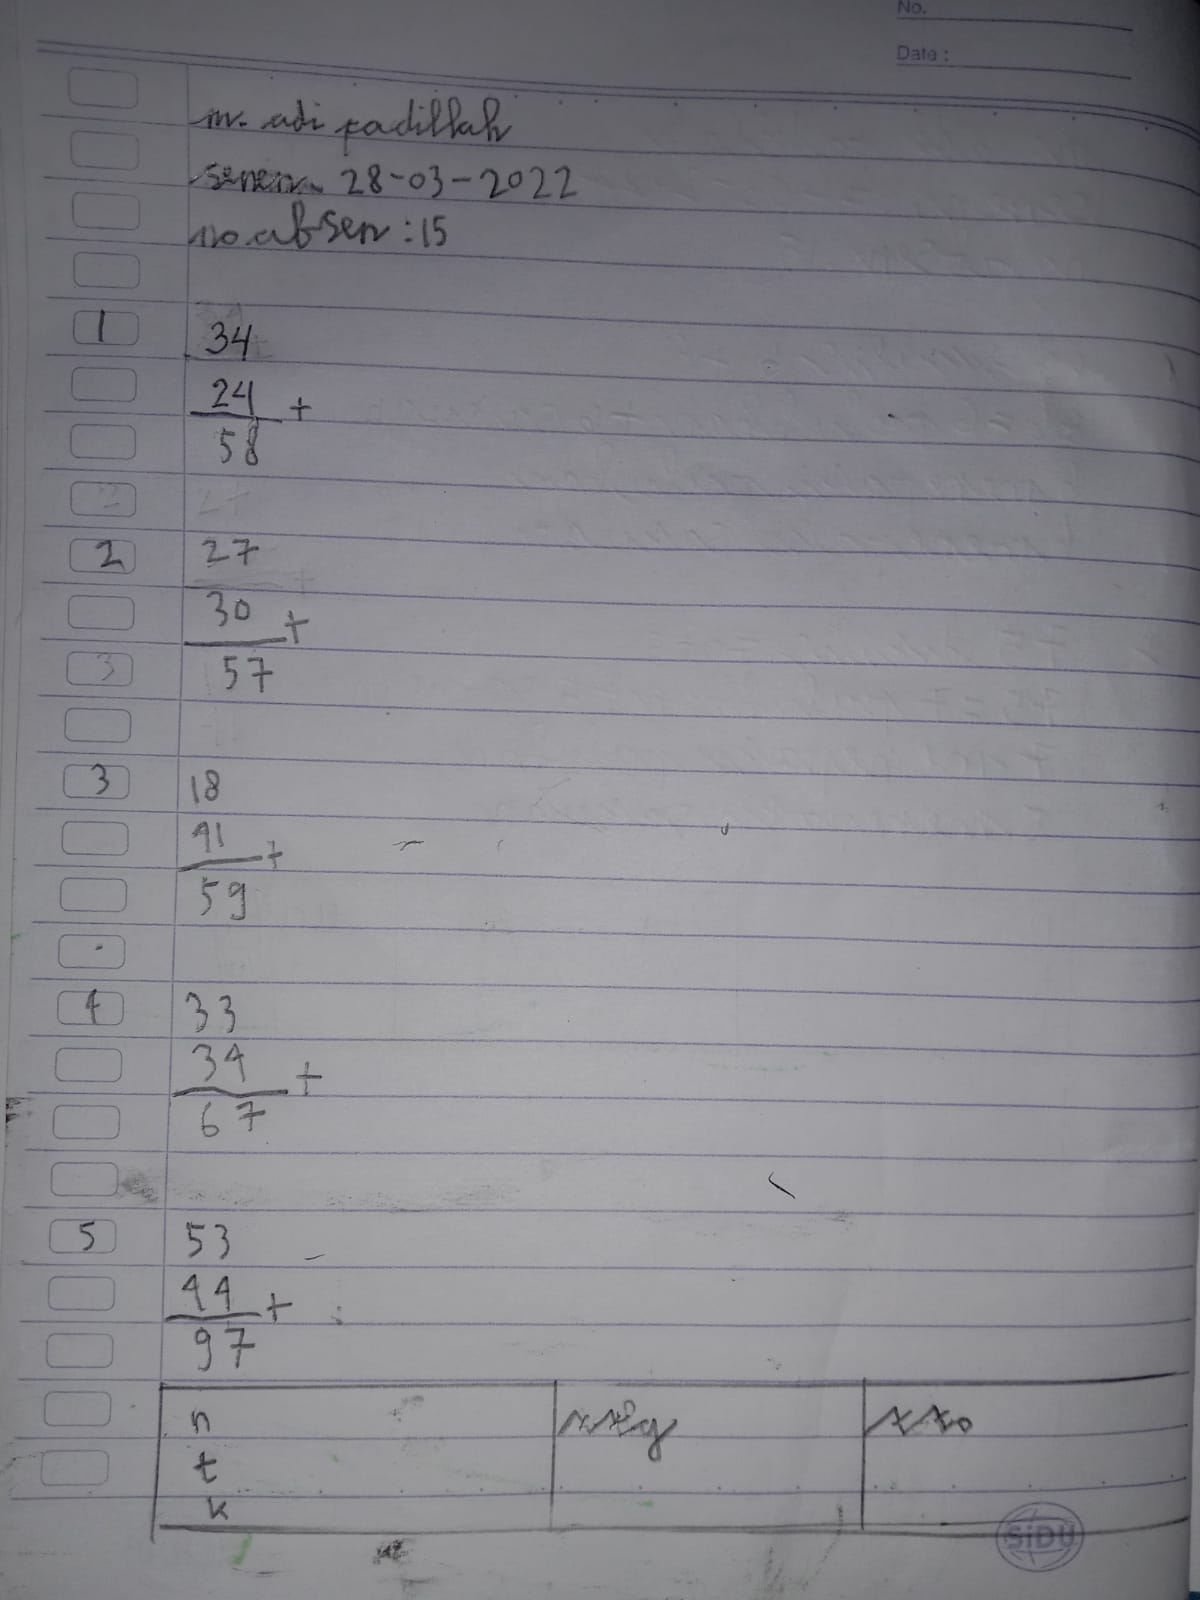 No.
Date :
m. adi padillah
senen. 28-03-2022
no absen : 15
1 34
24 +
58
2 27
30 +
3 57
3 18
41 +
59
4 33
34 +
67
5 53
44 +
97
n
t
k
SiDU